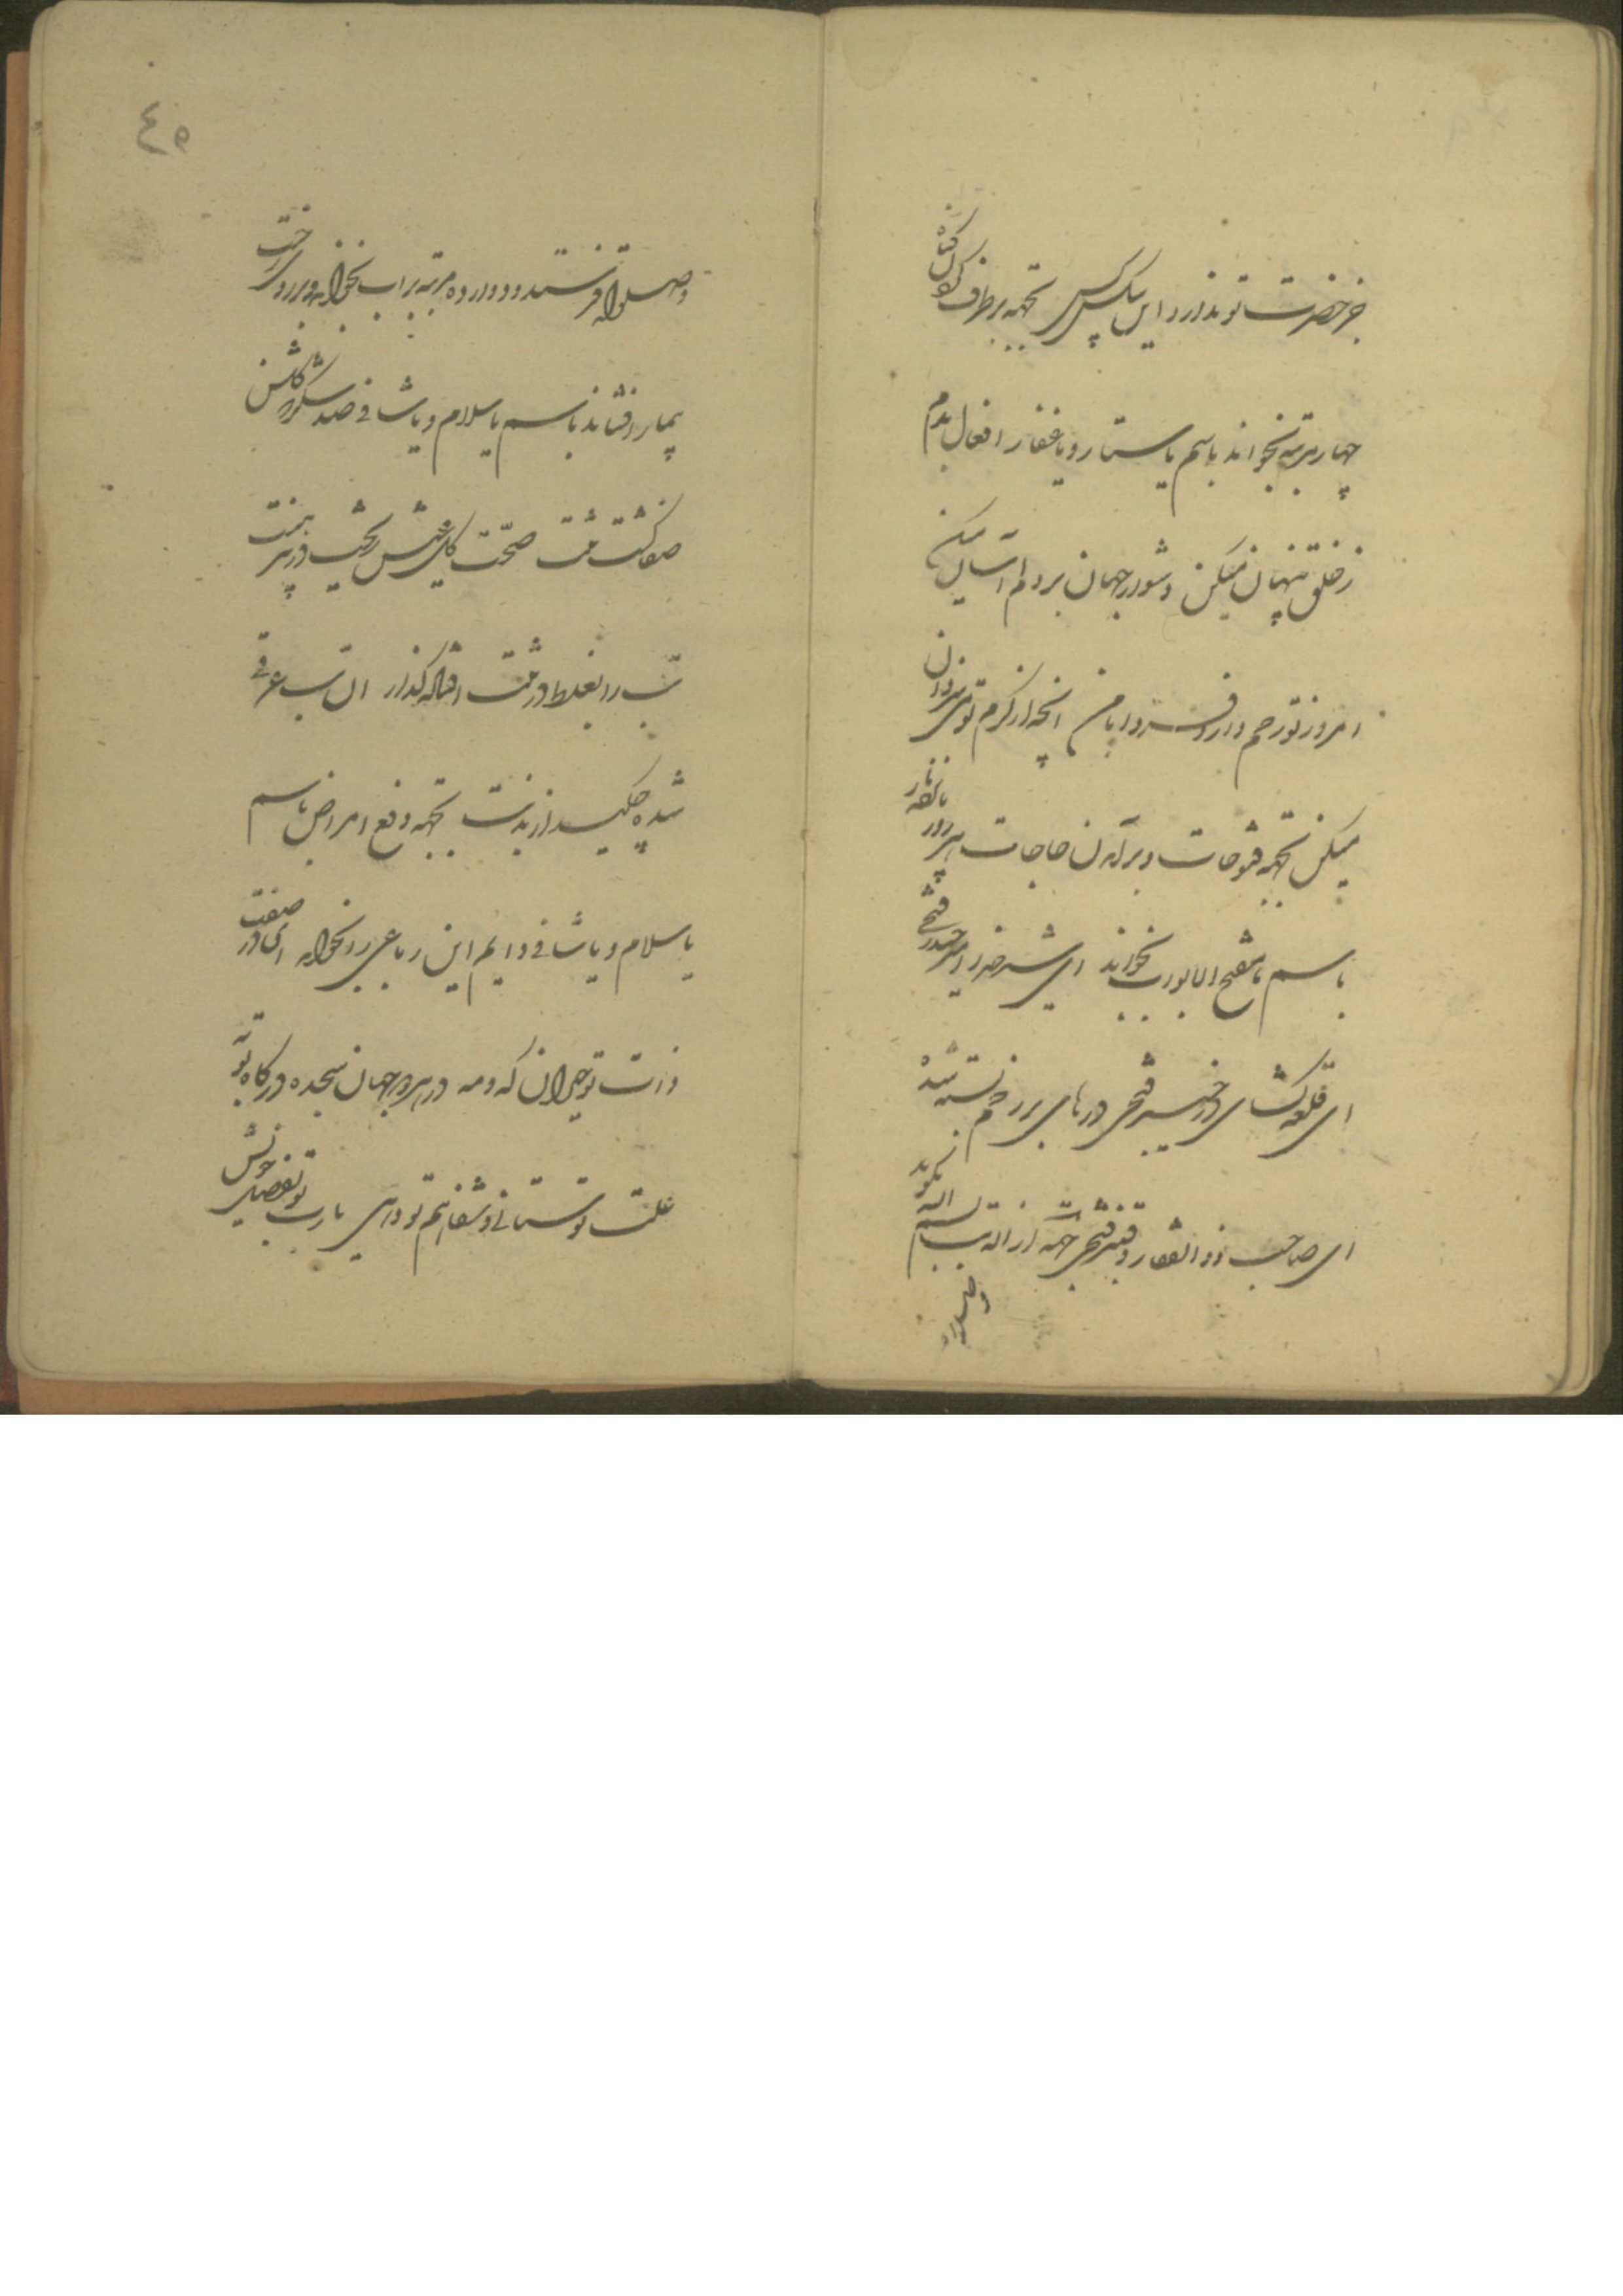 جز حضرت تو ندارد این بیکس کس بجهة برطرف کردن گناه
چهار مرتبه بخواند باسم یا ستار و یا غفار افعال بدم
ز خلق پنهان میکن دشوار جهان بر دلم آسان میکن
امروز توام رحم دار و فردا با من آنچه از کرم تو میسزد آن
میکن بجهة فتوحات و برآمدن حاجات هر روز
باسم یا مفتح الابواب بخواند ای شیر خدا امیر حیدر فتحی
ای قلعه گشای در خیبر فتحی درهای برخم بسته شده
ای صاحب ذوالفقار و قنبر فتحی جهة ازاله تب بسم الله بگوید
و صلوات
٤٥
و صلوات فرستد و دوازده مرتبه بر آب بخواند و بر روی
بیمار افشاند باسم یا سلام و یا شافی صد شکر که گلشن
صفا گشت تنت صحت گل عیش ریخت در پیرهنت
تب را بغلط در تنت افتاد گذار آن تب عرقی
شده چکید از بدنت بجهة دفع امراض باسم
یا سلام و یا شافی دایم این رباعی را بخواند ای در صفت
ذات تو حیران که و مه در هر دو جهان سجده درگاه تو به
علت تو ستانی و شفا هم تو دهی یا رب تو بفضل خویش